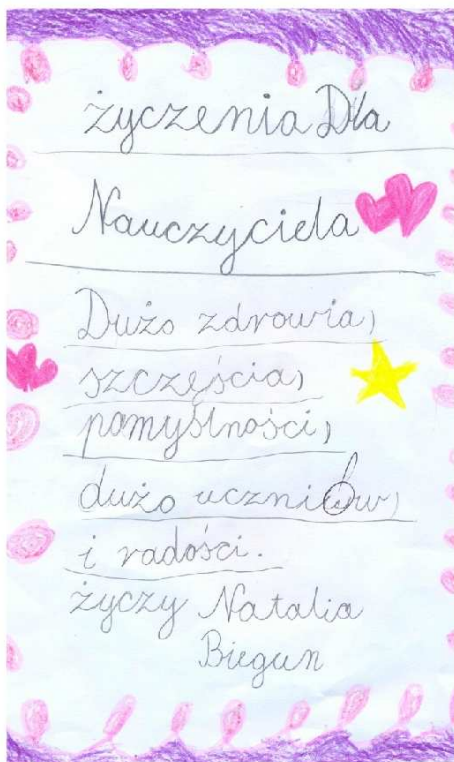 życzenia Dla
Nauczyciela
Dużo zdrowia,
szczęścia,
pomyślności,
dużo uczniów,
i radości.
życzy Natalia
Biegun